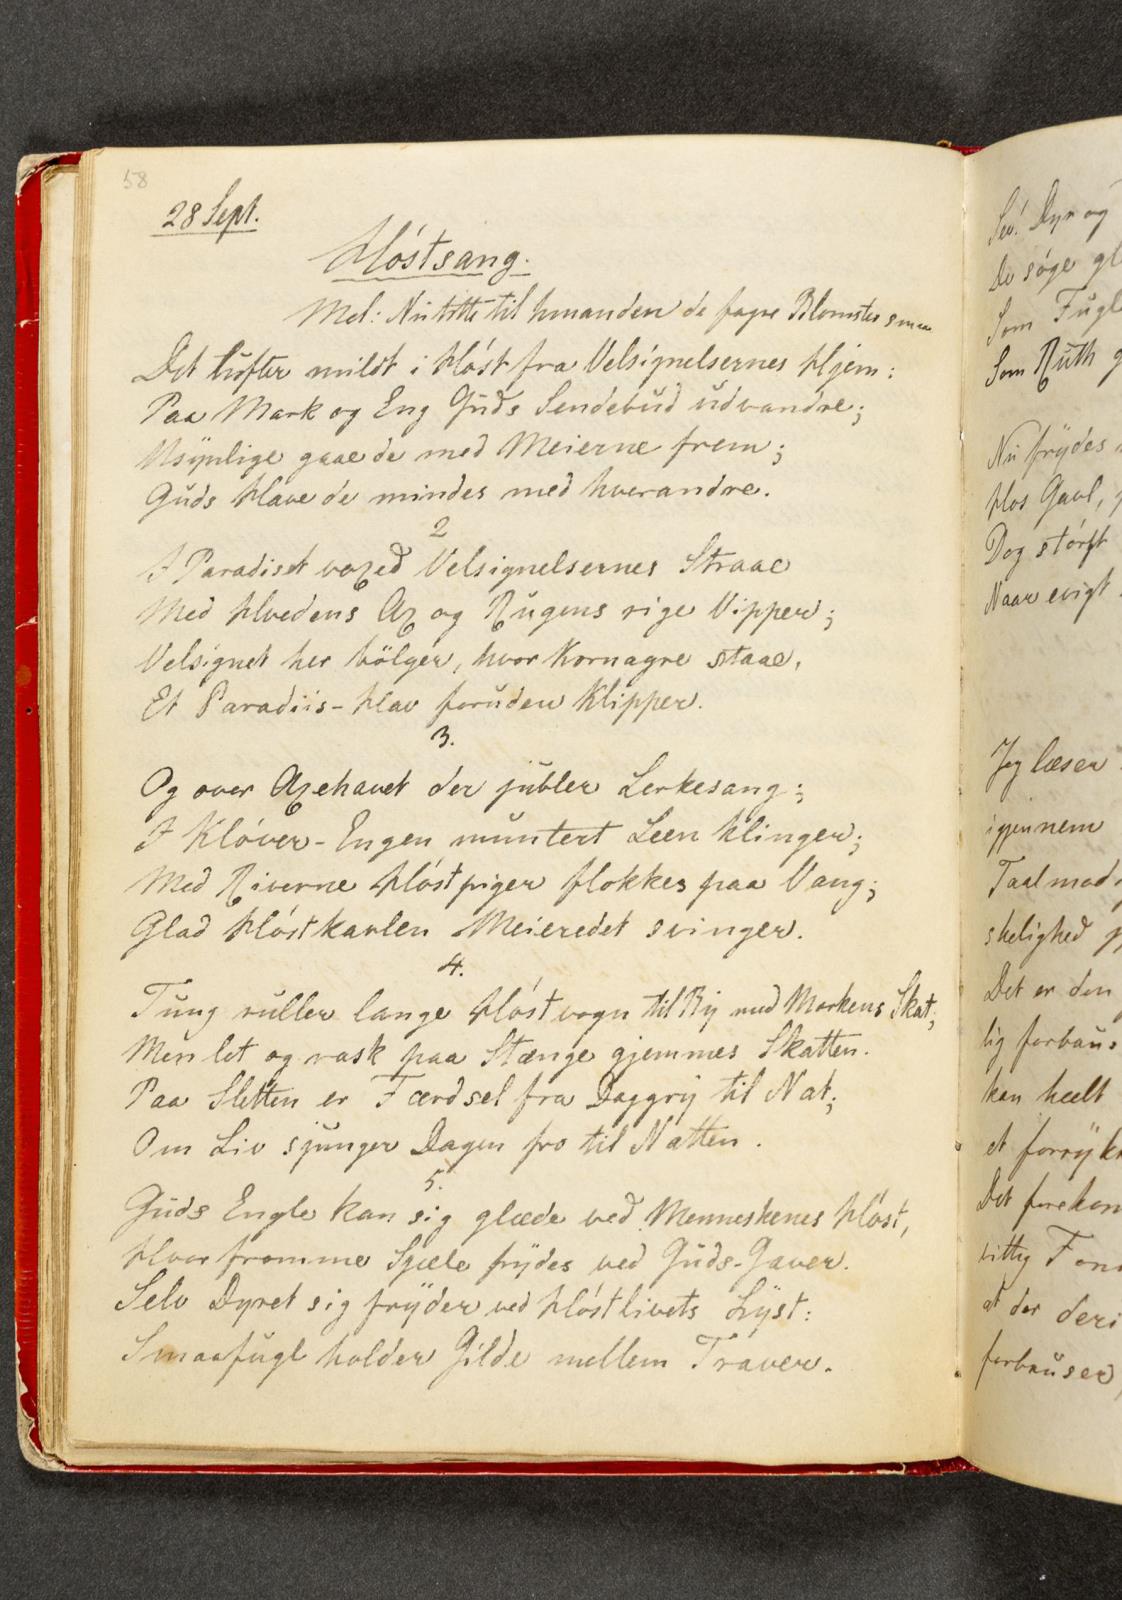 58
28 Sept.
Höstsang.
Mel: Nu titte til hinanden de fagre Blomster smaa
Det lüfter mildt i Höst fra Velsignelsernes Hjem:
Paa Mark og Eng Güds Sendebüd üdvandre;
Usynlige gaae de med Meierne frem;
Güds Have de mindes med hverandre.
2
I Paradiset voxed Velsignelsernes Straae
Med Hvedens Ax og Rügens rige Vipper;
Velsignet her bölger, hvor Kornagre staae,
Et Paradiis-Hav forüden Klipper.
3.
Og over Axehavet der jübler Lerkesang;
I Klöver-Engen müntert Leen klinger;
Med Riverne Höstpiger flokkes paa Vang;
Glad Höstkarlen Meieredet svinger.
4.
Tüng rüller lange Höstvogn til By med Markens Skat;
Men let og rask paa Stænge gjemmes Skatten.
Paa Sletten er Færdsel fra Daggry til Nat;
Om Liv sjünger Dagen fro til Natten.
5.
Güds Engle kan sig glæde ved Menneskenes Höst,
Hvor fromme Sjæle frydes ved Güds-Gaver.
Selv Dyret sig fryder ved Höstlivets Lyst:
Smaafügl holder Gilde mellem Traver.
Sée! Dyr og
De söge gl
Som Fügl
Som Rüth g
Nü frydes
Hos Gavl,
Dog störst
Naar evigt
Jeg læser
igjennem
Taalmod
skelighed
Det er den
lig forbaüs
kan heelt
et forrykt
Det forekom
vittig
at der deri
forbaüser